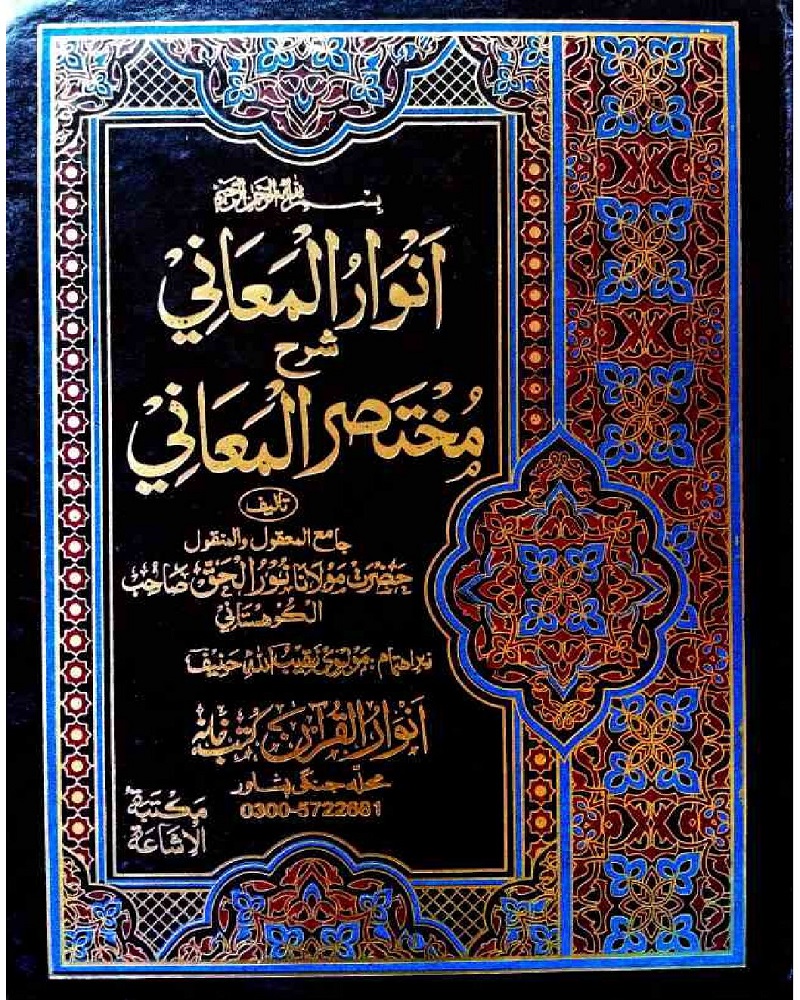 بسم الله الرحمن الرحيم
اَنْوَارُ الْمَعَانِي
شرح
مُخْتَصَر الْمَعَانِي
تالیف
جامع المعقول والمنقول
حَضْرَتْ مَوْلَانَا نُوْرُ الْحَقْ صَاحِبْ
الكُوهِسْتَانِي
زیر اهتمام : مولوی نقیب اللہ حنیف
انوار القرآن کتب خانہ
محلہ جنگی پشاور
0300-5722661
مكتبة
الإشاعة